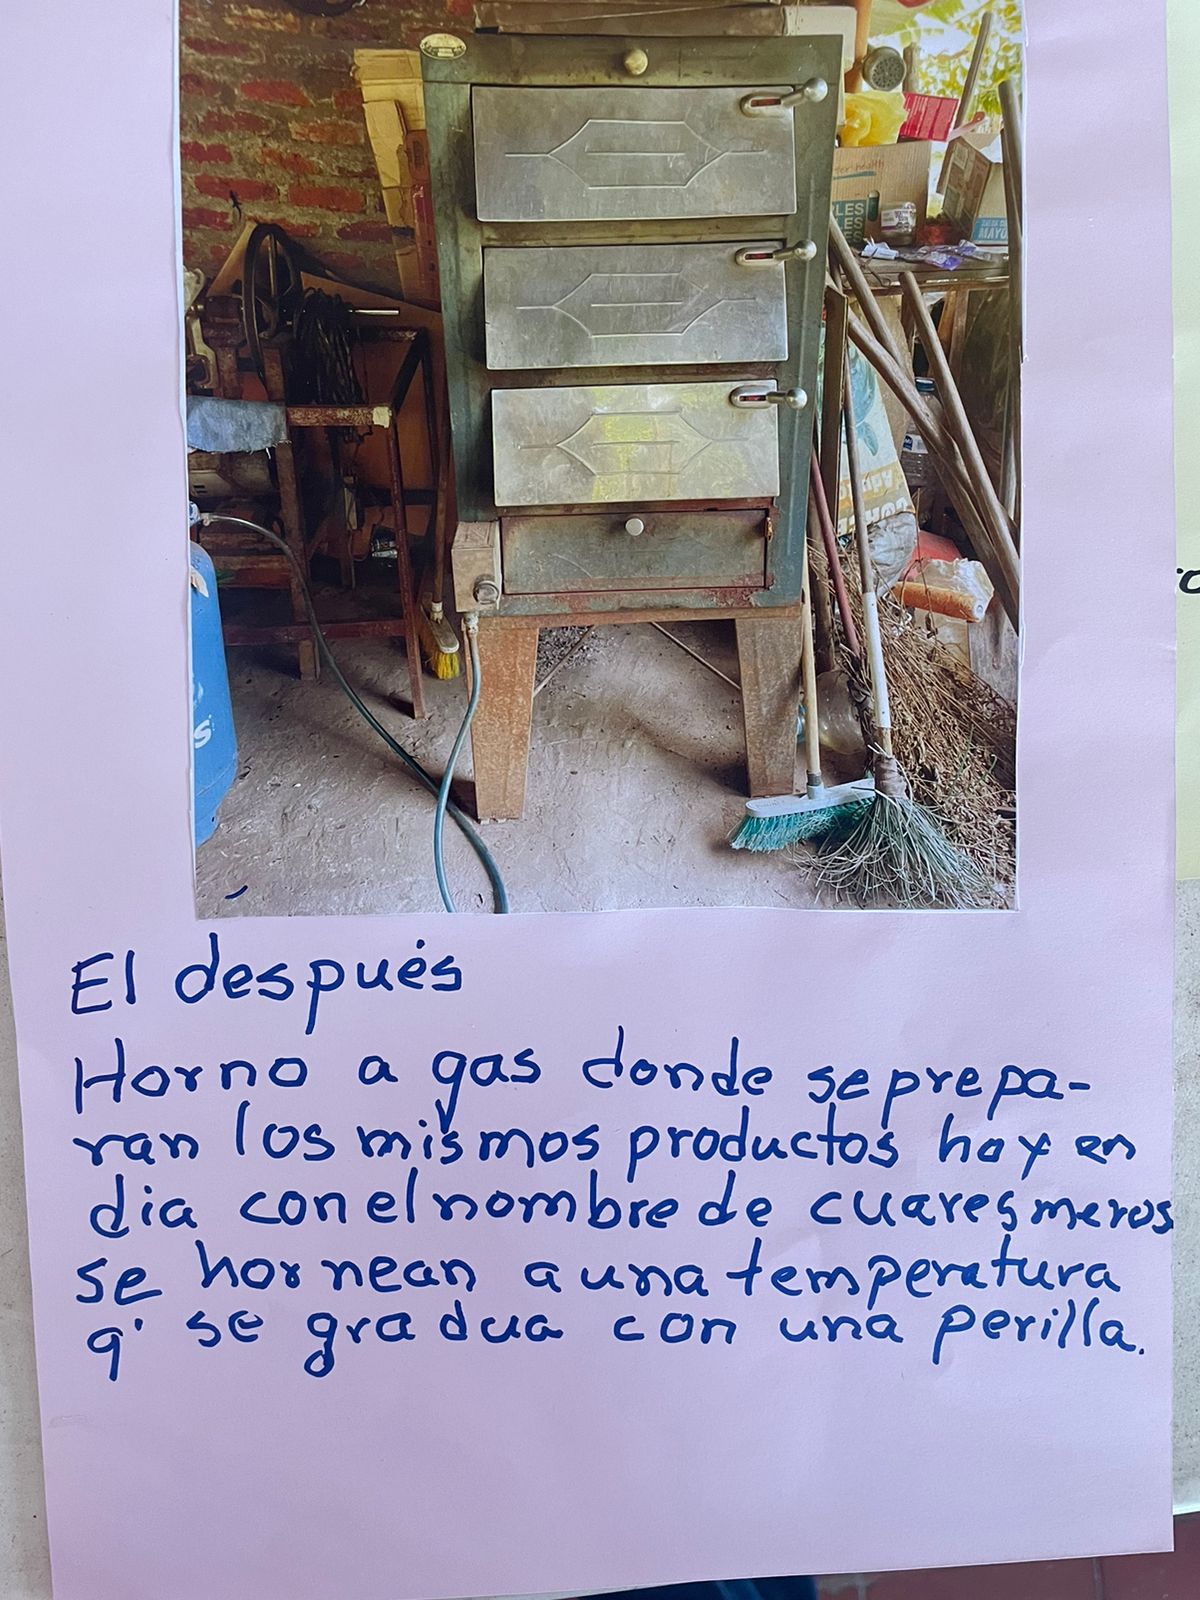 LES
LES
MAYO
S
El después
Horno a gas donde se prepa-
ran los mismos productos hoy en
dia con el nombre de cuaresmeros
se hornean a una temperatura
q' se gradua con una perilla.